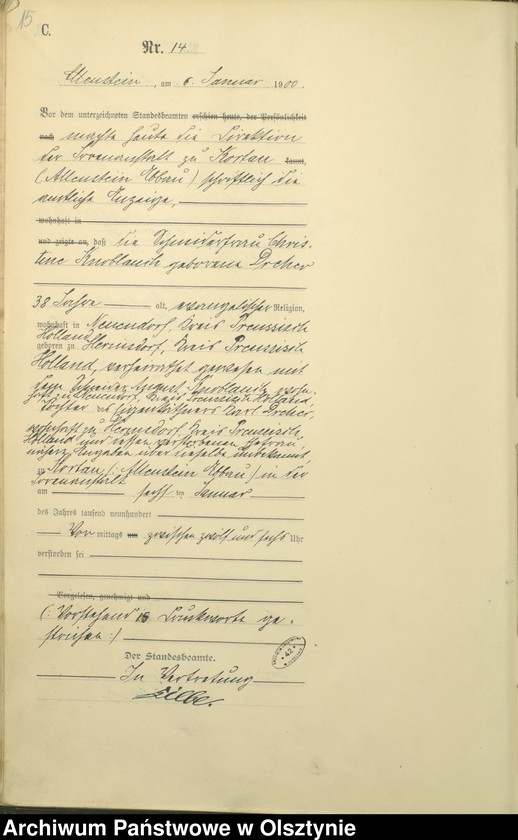 15
C.
Nr. 14
Allenstein, am 6. Januar 1900.
Vor dem unterzeichneten Standesbeamten erschien heute, der Persönlichkeit
nach machte heute die Direktion
der Irrenanstalt zu Kortau kannt,
(Allenstein Abbau) schriftlich die
amtliche Anzeige,
wohnhaft in
und zeigte an, daß die Schneiderfrau Chris-
tine Knoblauch geborene Dreher
38 Jahre alt, evangelischer Religion,
wohnhaft in Neuendorf, Kreis Preussisch
Holland
geboren zu Hermsdorf, Kreis Preussisch
Holland, verheirathet gewesen mit
dem Schneider August Knoblauch, wohn-
haft zu Neuendorf, Kreis Preussisch Holland,
Tochter des Eigenkäthners Karl Dreher,
wohnhaft zu Hermsdorf, Kreis Preussisch
Holland und dessen verstorbenen Ehefrau,
nähere Angaben über dieselbe unbekannt
zu Kortau (Allenstein Abbau) in der
Irrenanstalt
am sechsten Januar
des Jahres tausend neunhundert
Vormittags um zwischen zwölf und sechs Uhr
verstorben sei
Vorgelesen, genehmigt und
(: Vorstehend 15 Druckworte ge-
strichen :)
Der Standesbeamte.
In Vertretung
42
Archiwum Państwowe w Olsztynie